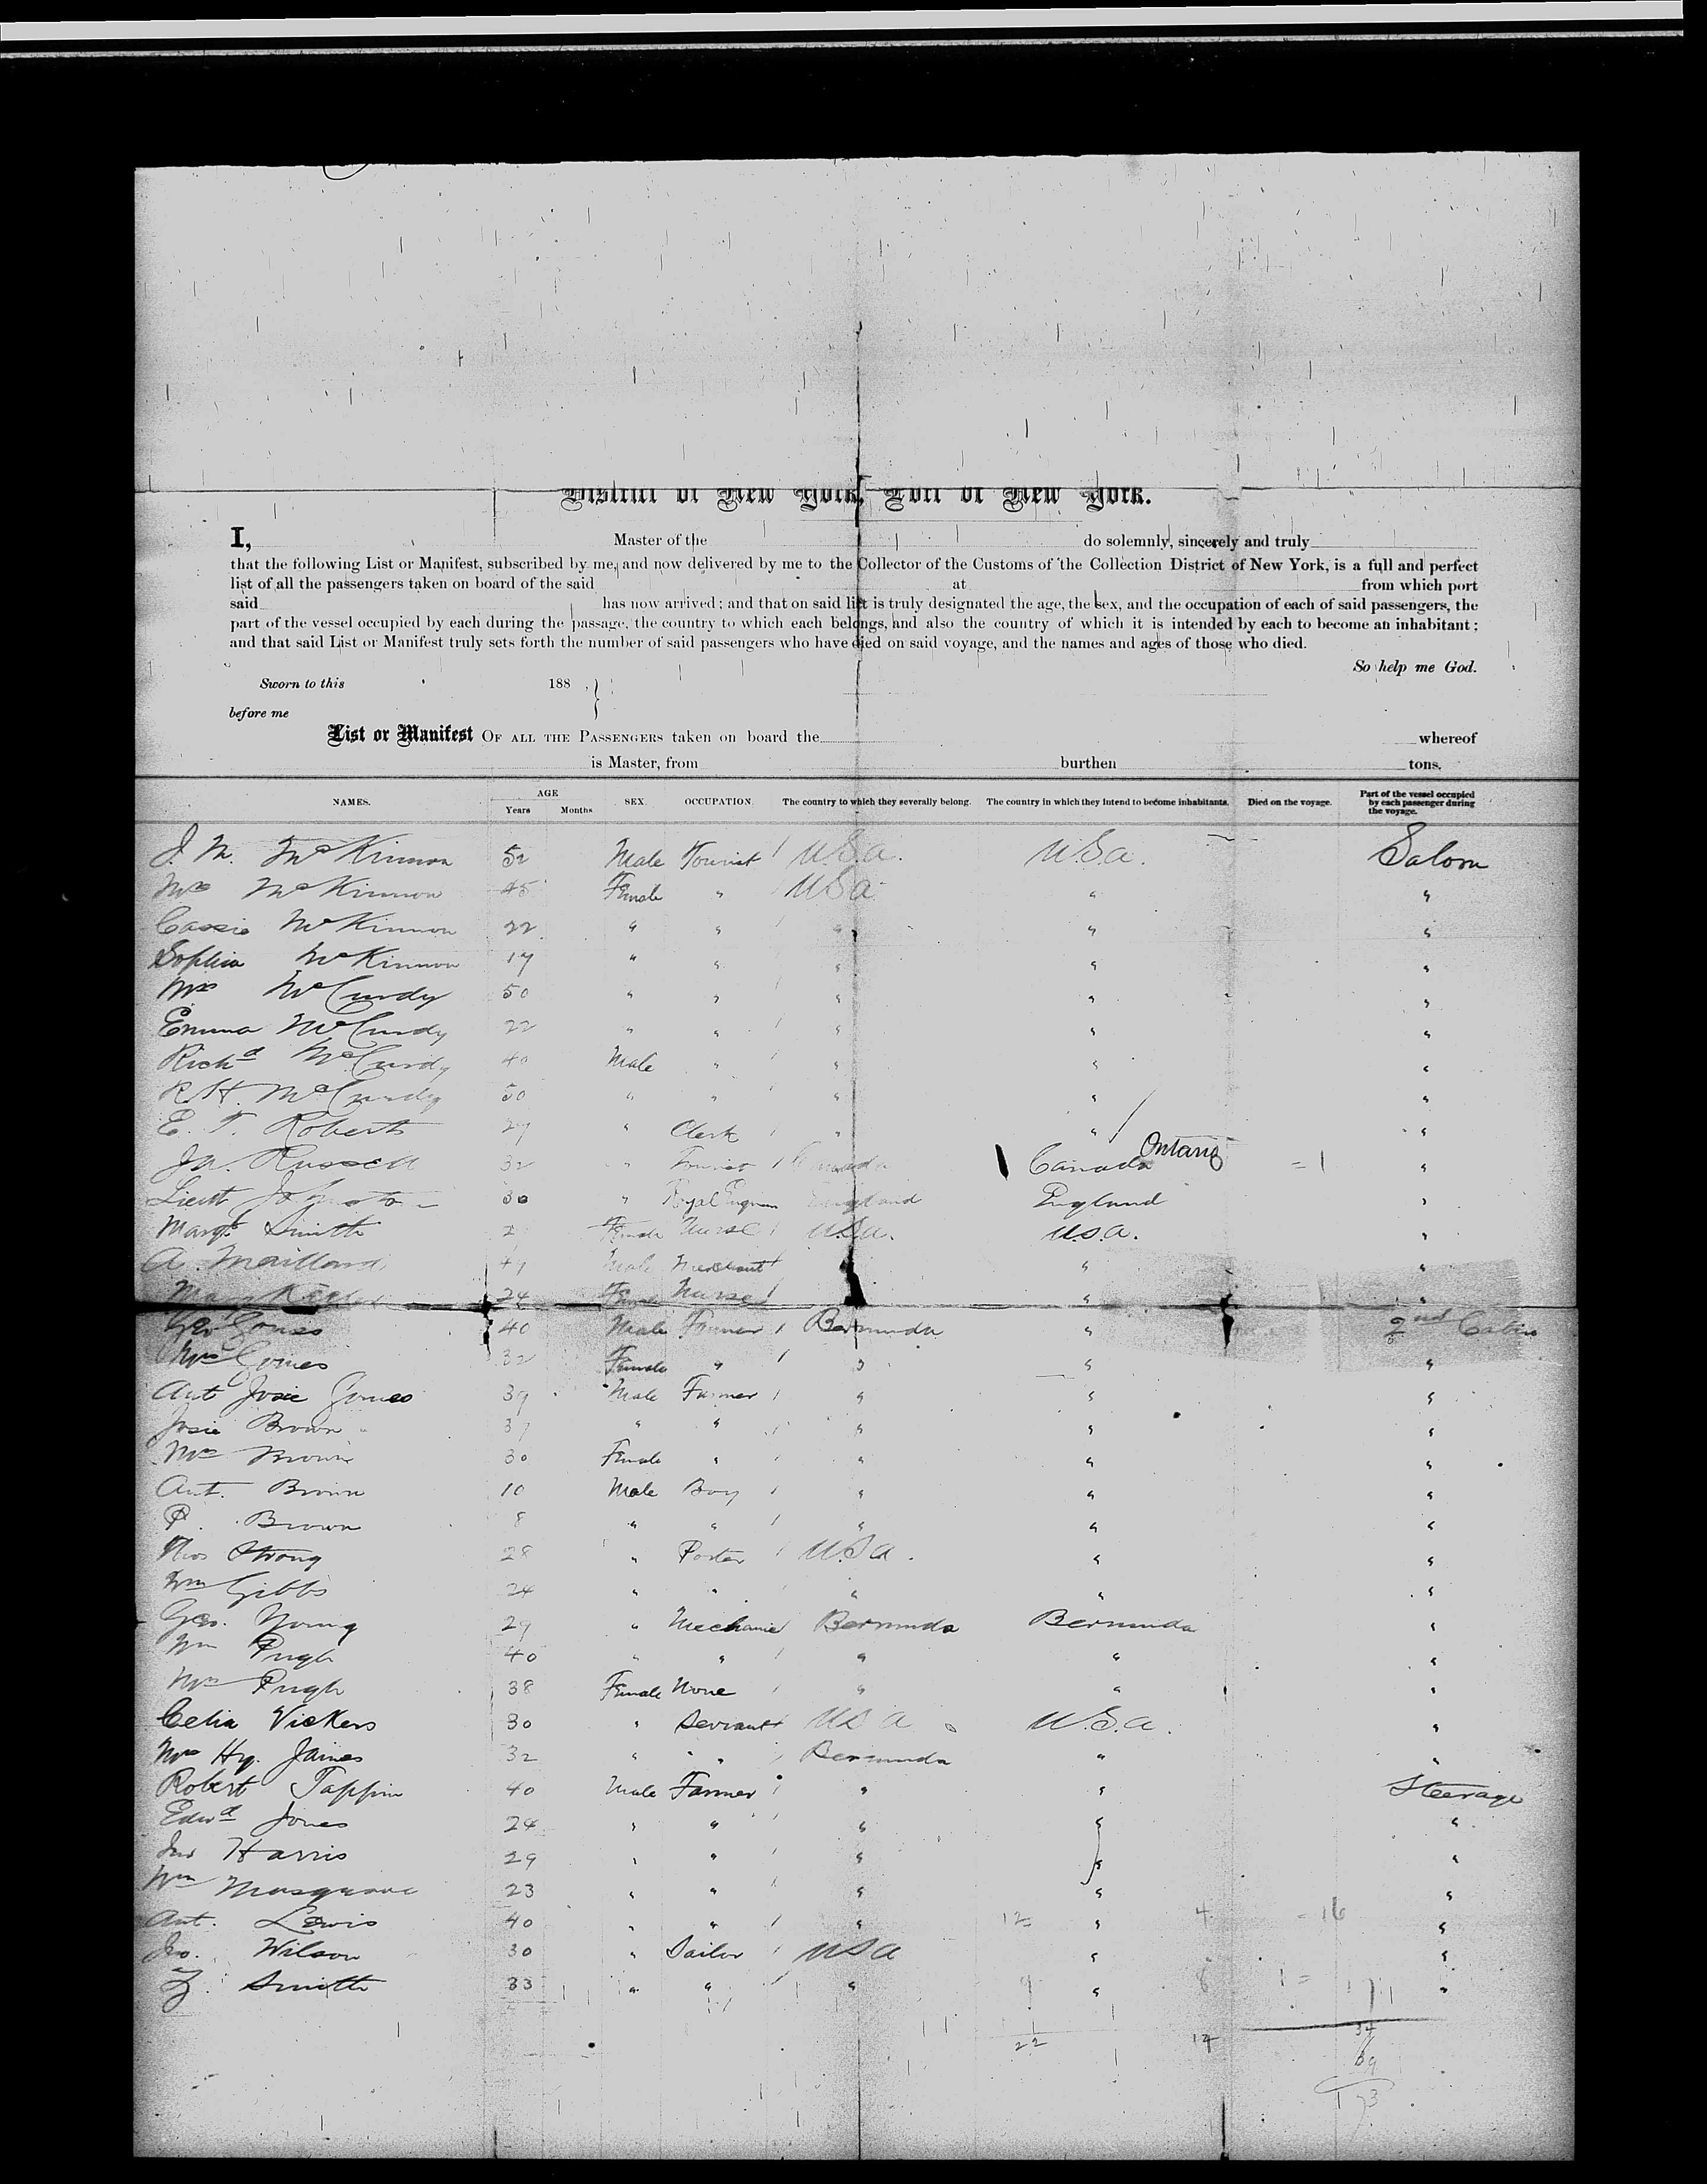 District of New York, Port of New York.
I, Master of the do solemnly, sincerely and truly
that the following List or Manifest, subscribed by me, and now delivered by me to the Collector of the Customs of the Collection District of New York, is a full and perfect
list of all the passengers taken on board of the said at from which port
said has now arrived; and that on said list is truly designated the age, the sex, and the occupation of each of said passengers, the
part of the vessel occupied by each during the passage, the country to which each belongs, and also the country of which it is intended by each to become an inhabitant;
and that said List or Manifest truly sets forth the number of said passengers who have died on said voyage, and the names and ages of those who died.
So help me God.
Sworn to this 188
before me
List or Manifest OF ALL THE PASSENGERS taken on board the whereof
is Master, from burthen tons.
NAMES. AGE Years Months SEX. OCCUPATION. The country to which they severally belong. The country in which they intend to become inhabitants. Died on the voyage. Part of the vessel occupied by each passenger during the voyage.
J. M. McKinnon 52 Male Tourist U.S.a. U.S.a. Saloon
Mrs McKinnon 45 Female " U.S.a. " "
Cassie McKinnon 22 " " " " "
Sophia McKinnon 17 " " " " "
Mrs McCurdy 50 " " " " "
Emma McCurdy 22 " " " " "
Richd McCurdy 40 Male " " " "
R. H. McCurdy 50 " " " " "
E. T. Roberts 27 " Clerk " " "
Jn. Russell 32 " Canada Canada Ontario = 1 "
Lieut 30 " Royal England England "
Margt Smith Female Nurse U.S.a. U.S.a. "
A. Maillard Male Merchant " "
Mary 24 Female Nurse " "
Geo Gomes 40 Male Farmer Bermuda " 2nd Cabin
Mrs Gomes 32 Female " " " "
Ant Josie Gomes 39 Male Farmer " " "
Josie Brown 37 " " " " "
Mrs Brown 30 Female " " " "
Ant. Brown 10 Male Boy " " "
P. Brown 8 " " " " "
Thos Strong 28 " Porter U.S.a. " "
Wm Gibbs 24 " " " " "
Geo. Young 29 " Mechanic Bermuda Bermuda "
Wm Pugh 40 " " " " "
Mrs Pugh 38 Female None " " "
Celia Vickers 30 " Servant U S a U.S.a. "
Mrs Hy. James 32 " " Bermuda " "
Robert Tappin 40 Male Farmer " " Steerage
Edwd Jones 24 " " " " "
Jno Harris 29 " " " " "
Wm Musgrave 23 " " " " "
Ant. Lewis 40 " " " 12 " 4 = 16 "
Jno. Wilson 30 " Sailor U S a " "
Smith 33 " " " 9 " 8 1 = "
22 34